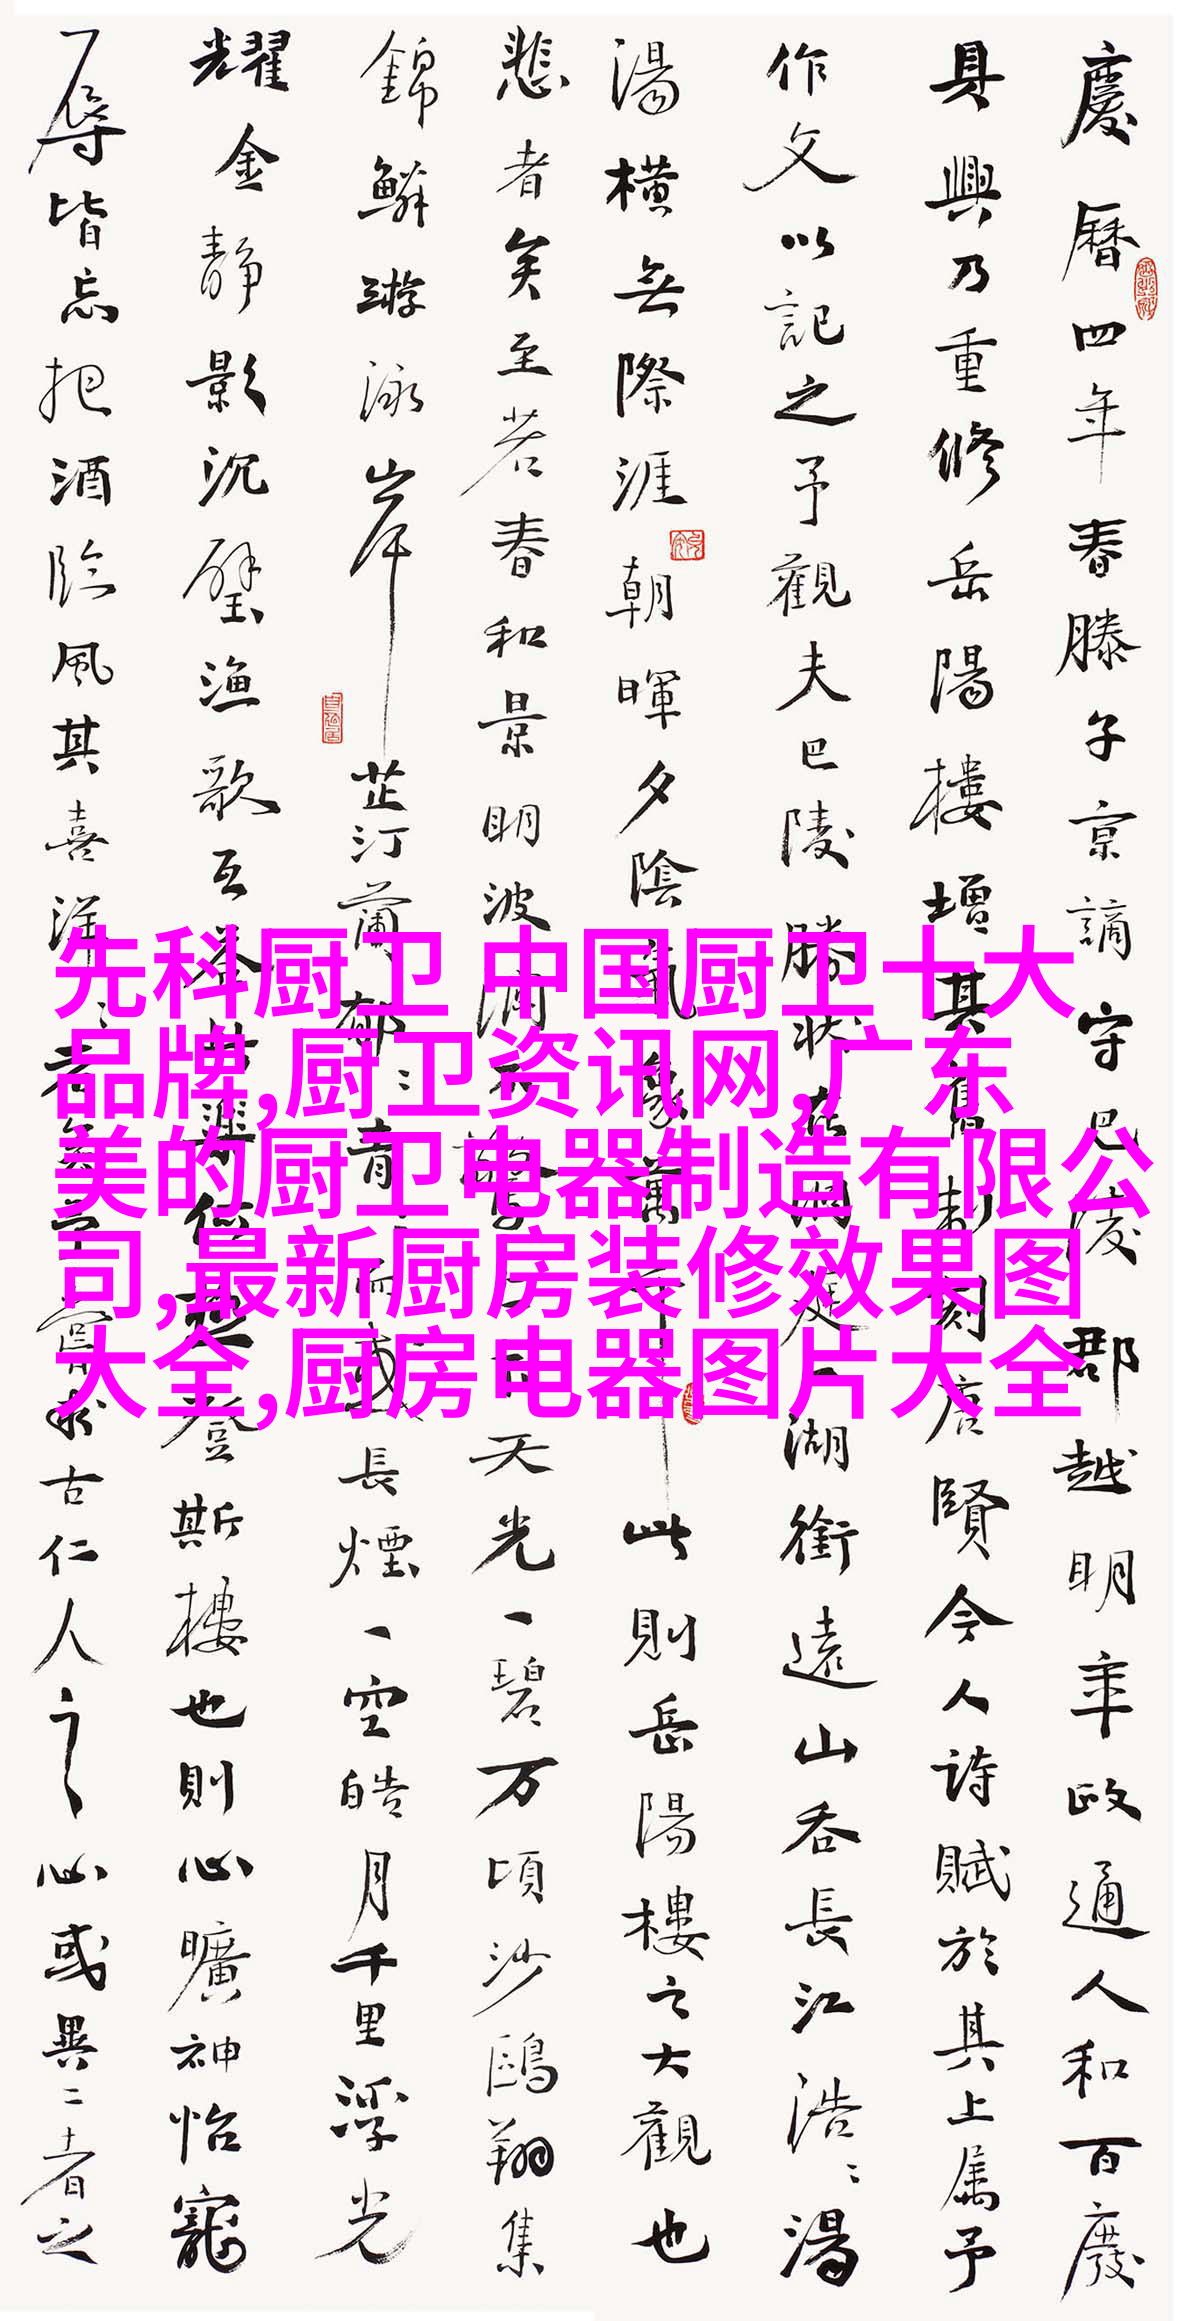 先科厨卫 中国厨卫十大
品牌,厨卫资讯网,广东
美的厨卫电器制造有限公
司,最新厨房装修效果图
大全,厨房电器图片大全
慶曆四年春滕子京謫守巴陵郡越明年政通人和百廢
具興乃重修岳陽樓增其舊制刻唐賢今人詩賦於其上属予
作文以記之予觀夫巴陵勝狀在洞庭一湖銜遠山吞長江浩〻湯
湯橫無際涯朝暉夕陰氣象萬千此則岳陽樓之大觀也
悲者矣至若春和景明波瀾不驚上下天光一碧万頃沙鷗翔集
錦鱗游泳岸芷汀蘭郁〻青〻而或長煙一空皓月千里浮光
耀金靜影沉璧漁歌互答此樂何極登斯樓也則心曠神怡寵
辱皆忘把酒臨風其喜洋〻者矣予嘗求古仁人之心或異二者之